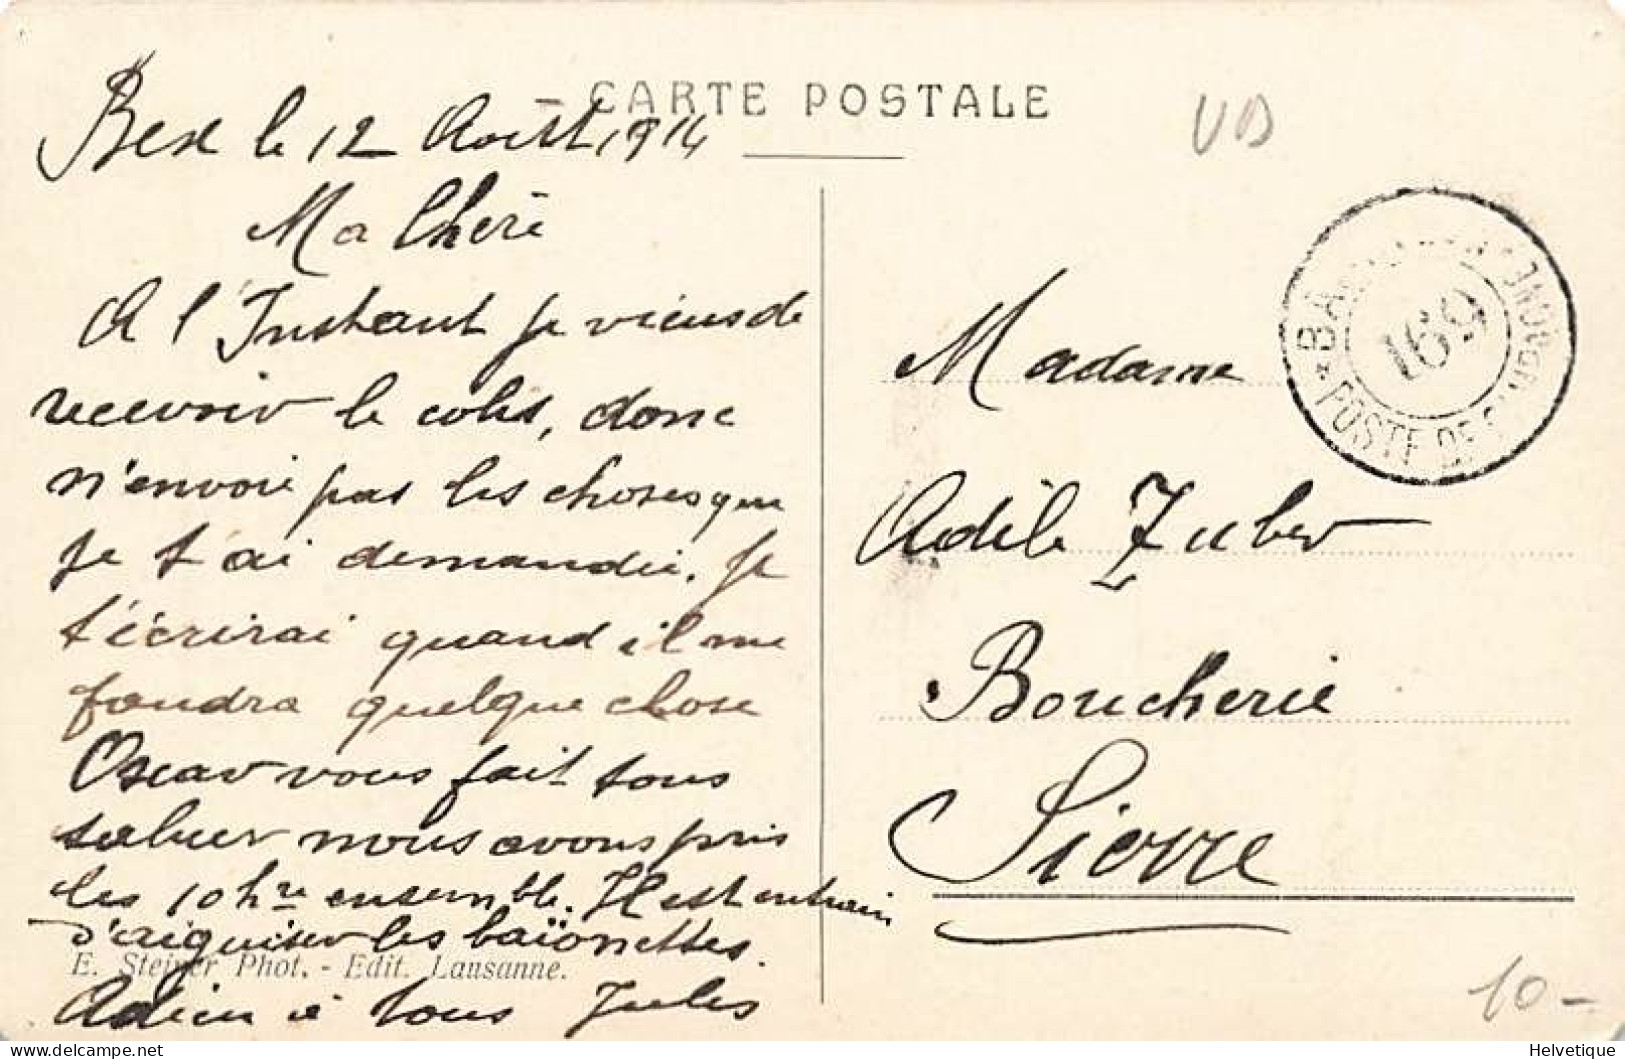 CARTE POSTALE
Bex le 12 Août 1914
Ma Chère
A l'Instant je viens de
recevoir le colis, donc
n'envoie pas les choses que
je t'ai demandée. Je
t'écrirai quand il me
faudra quelque chose
Oscar vous fait tous
saluer nous avons pris
les 10 hre ensemble. Il est entrain
d'aiguiser les baïonettes.
E. Steiner Phot. - Edit. Lausanne.
Adieu à tous Jules
VD
BA
169
POSTE DE
Madame
Adèle Zuber
Boucherie
Sierre
10-
delcampe.net
Helvetique